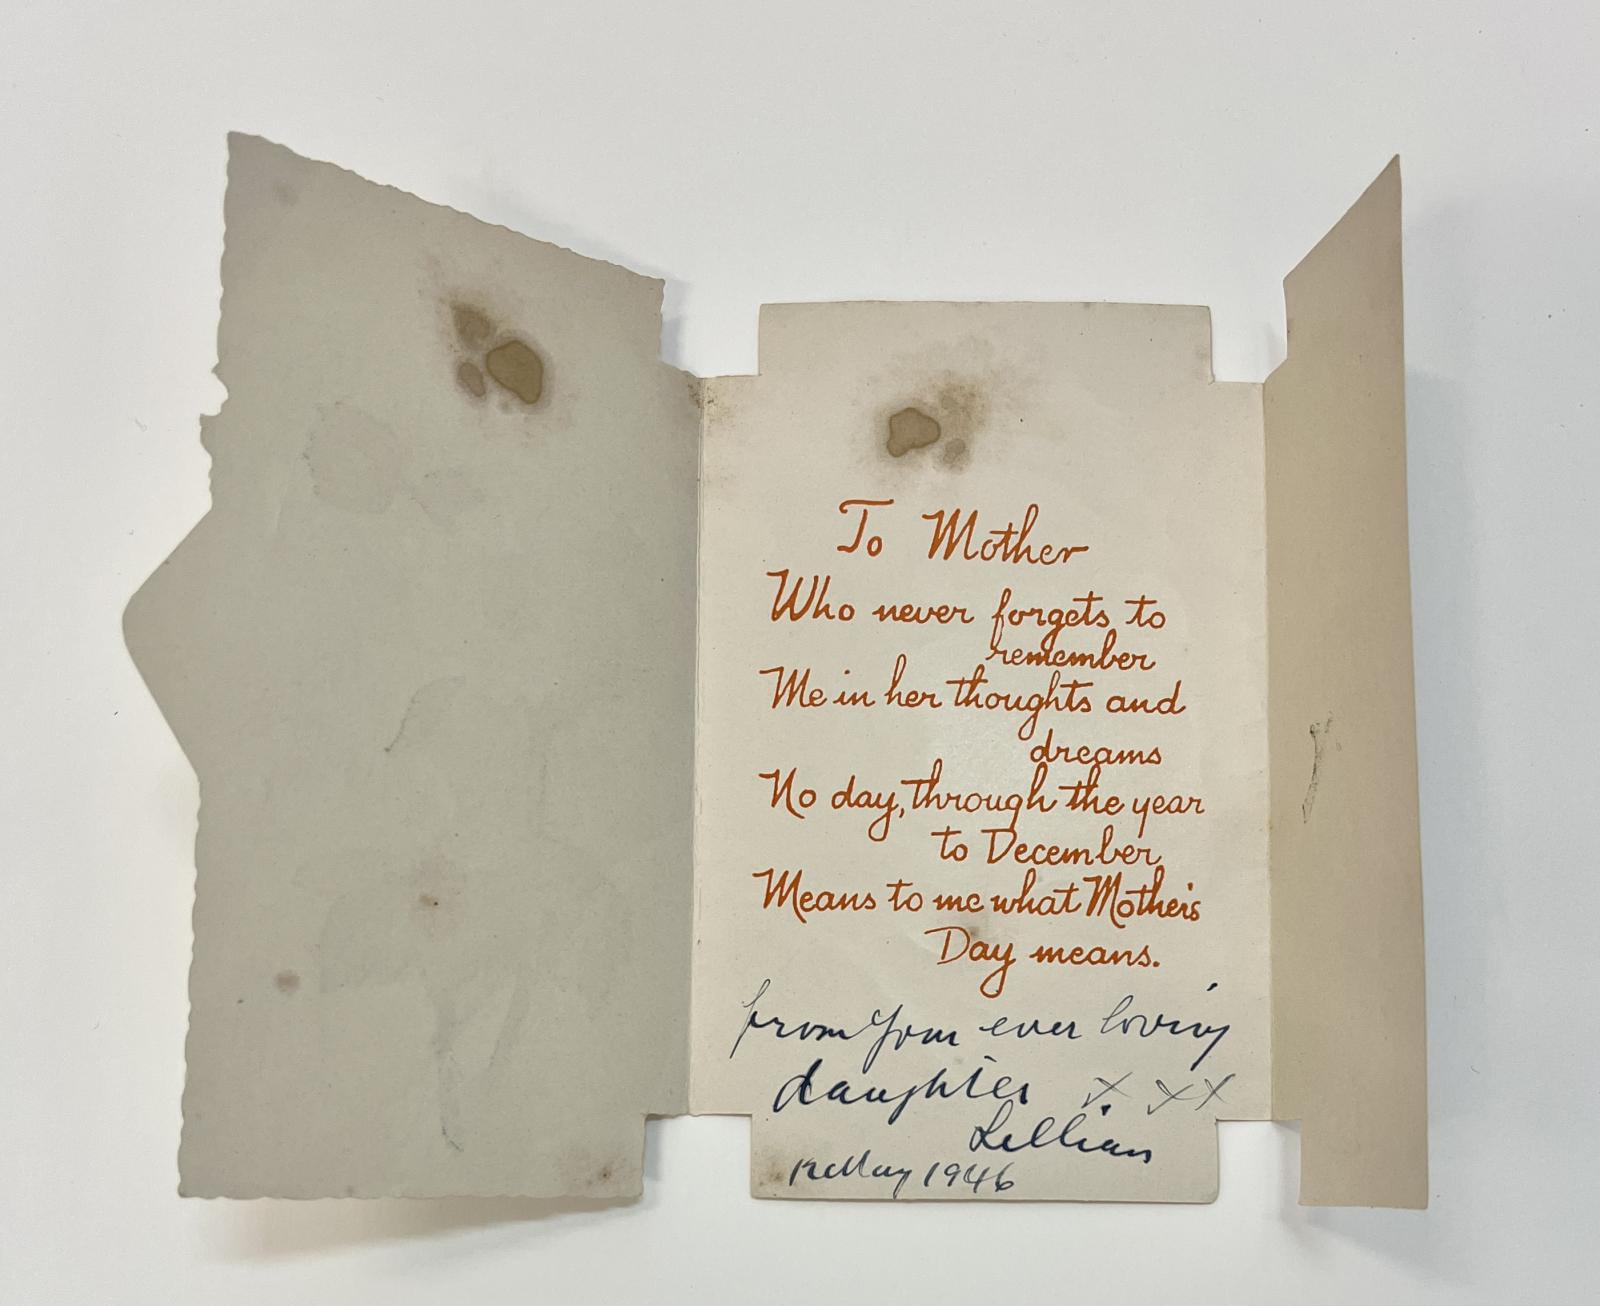 To Mother
Who never forgets to
remember
Me in her thoughts and
dreams
No day, through the year
to December
Means to me what Mother's
Day means.
from your ever loving
daughter x xx
Lillian
12 May 1946